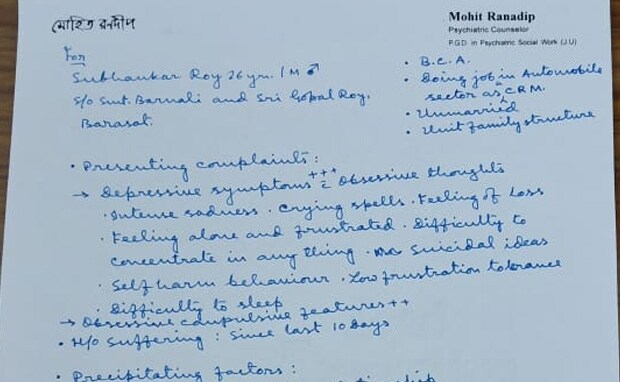 মোহিত রণদীপ
Mohit Ranadip
Psychiatric Counselor
P.G.D. in Psychiatric Social Work (J.U)
For
Subhankar Roy 26 yr. / M ♂
S/o Smt. Barnali and Sri Gopal Roy.
Barasat.
• B.C.A.
• Doing job in Automobile
sector as CRM.
• Unmarried
• Unit family structure
• Presenting complaints:
→ Depressive symptoms +++ Obsessive thoughts
• Intense sadness • Crying spells • Feeling of Loss
• Feeling alone and frustrated • Difficulty to
concentrate in any thing • Suicidal ideas
• Self harm behaviour • Low frustration tolerance
• Difficulty to sleep
→ Obsessive compulsive features ++
• H/O Suffering : Since last 10 Days
• Precipitating factors :